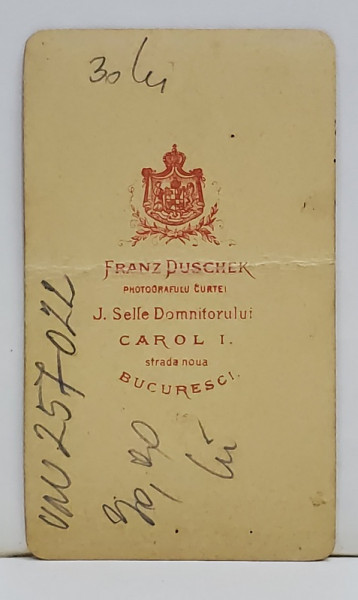 30 lei
FRANZ DUSCHEK
PHOTOGRAFULU CURTEI
J. Selle Domnitorului
CAROL I.
strada noua
BUCURESCI.
257022
lei